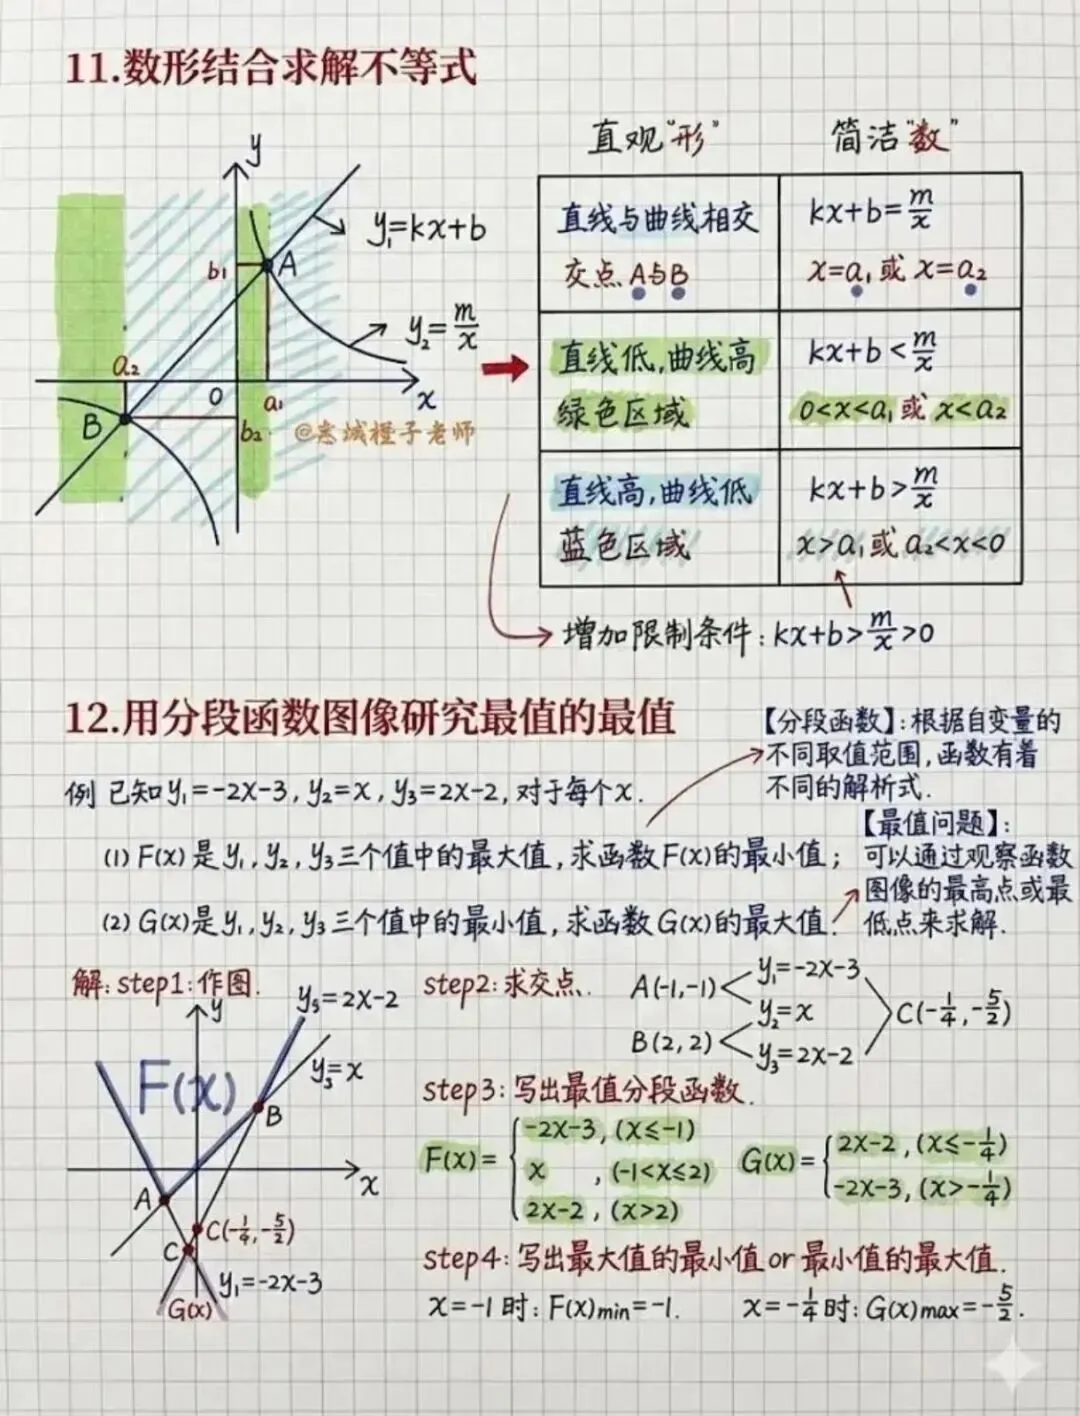 11.数形结合求解不等式
直观"形" 简洁"数"
y
y₁=kx+b
b₁ A
y₂=m/x
a₂ 0 a₁ x
B b₂
直线与曲线相交 kx+b=m/x
交点A与B x=a₁或x=a₂
直线低,曲线高 kx+b<m/x
绿色区域 0<x<a₁或x<a₂
直线高,曲线低 kx+b>m/x
蓝色区域 x>a₁或a₂<x<0
增加限制条件:kx+b>m/x>0
12.用分段函数图像研究最值的最值
【分段函数】:根据自变量的
不同取值范围,函数有着
不同的解析式.
例 已知y₁=-2x-3,y₂=x,y₃=2x-2,对于每个x.
(1) F(x)是y₁,y₂,y₃三个值中的最大值,求函数F(x)的最小值;
(2) G(x)是y₁,y₂,y₃三个值中的最小值,求函数G(x)的最大值.
【最值问题】:
可以通过观察函数
图像的最高点或最
低点来求解.
解:step1:作图.
y
y₃=2x-2
F(x)
y₃=x
B
x
A
C(-1/4,-5/2)
C
y₁=-2x-3
G(x)
step2:求交点.
A(-1,-1) y₁=-2x-3
y₂=x C(-1/4,-5/2)
B(2,2) y₃=2x-2
step3:写出最值分段函数.
F(x)= { -2x-3,(x≤-1)
x ,(-1<x≤2)
2x-2 ,(x>2)
G(x)= { 2x-2,(x≤-1/4)
-2x-3,(x>-1/4)
step4:写出最大值的最小值or最小值的最大值.
x=-1时:F(x)min=-1. x=-1/4时:G(x)max=-5/2.